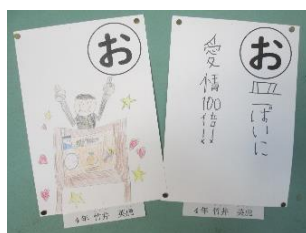 お
4年 竹井
お
皿いっぱいに
愛情100倍!!
4年 竹井